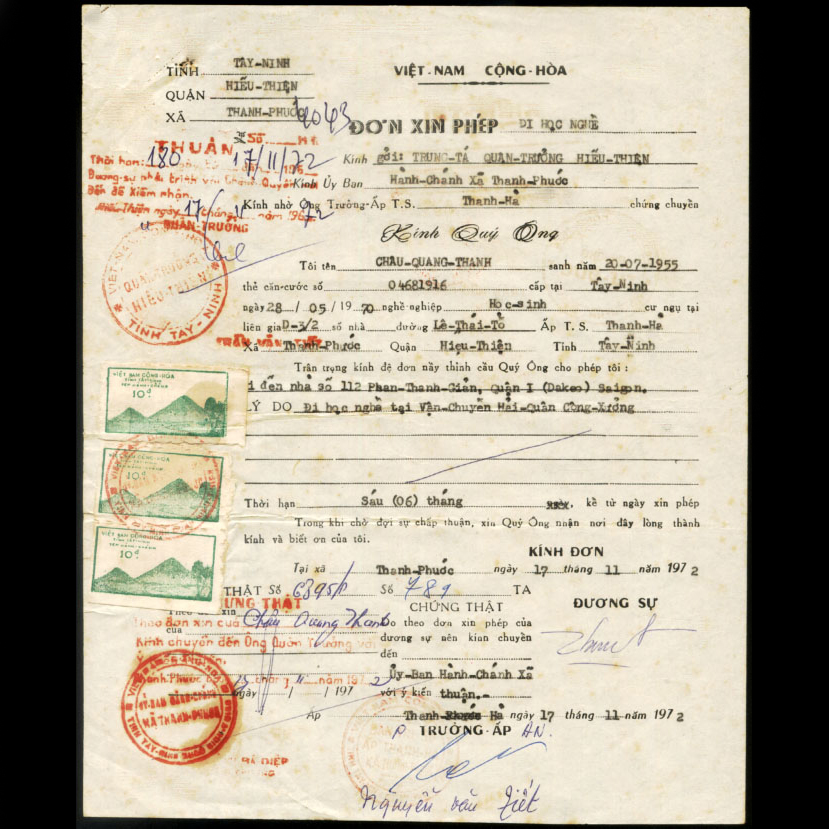 TỈNH TÂY-NINH
VIỆT-NAM CỘNG-HÒA
QUẬN HIẾU-THIỆN
XÃ THANH-PHƯỚC
4043
ĐƠN XIN PHÉP ĐI HỌC NGHỀ
THUẬN Số
Thời hạn: 180 17/11/72
Kính gởi: TRUNG-TÁ QUẬN-TRƯỞNG HIẾU-THIỆN
Đương-sự phải trình với Chánh Quyền
Kính Ủy Ban Hành-Chánh Xã Thanh-Phước
đến để kiểm nhận
Kính nhờ Ông Trưởng-Ấp T.S. Thanh-Hà chứng chuyển
Hiếu-Thiện ngày 17 tháng 11 năm 1972
QUẬN-TRƯỞNG
Kính Quý Ông
Tôi tên CHÂU-QUANG-THANH sanh năm 20-07-1955
thẻ căn-cước số 04681916 cấp tại Tây-Ninh
QUẬN-TRƯỞNG
HIẾU-THIỆN
TỈNH TÂY-NINH
ngày 28 / 05 / 1970 nghề nghiệp Học-sinh cư ngụ tại
liên gia D-3/2 số nhà đường Lê-Thái-Tổ Ấp T.S. Thanh-Hà
Xã Thanh-Phước Quận Hiếu-Thiện Tỉnh Tây-Ninh
Trân trọng kính đệ đơn này thỉnh cầu Quý Ông cho phép tôi :
VIỆT NAM CỘNG-HÒA
TỈNH TÂY-NINH
10đ
i đến nhà số 112 Phan-Thanh-Giản, Quận I (Dakao) Saigon.
LÝ DO Đi học nghề tại Vận-Chuyển Hải-Quân Công-Xưởng
VIỆT NAM CỘNG-HÒA
10đ
Thời hạn Sáu (06) tháng kể từ ngày xin phép
Trong khi chờ đợi sự chấp thuận, xin Quý Ông nhận nơi đây lòng thành
kính và biết ơn của tôi.
VIỆT NAM CỘNG-HÒA
TỈNH TÂY-NINH
10đ
KÍNH ĐƠN
Tại xã Thanh-Phước ngày 17 tháng 11 năm 1972
THẬT Số Số 789 TA
ĐƯƠNG SỰ
CHỨNG THẬT
Theo đơn xin của Châu Quang Thanh
Do theo đơn xin phép của
Kính chuyển đến Ông Quận Trưởng với
đương sự nên kính chuyển
đến
Ủy-Ban Hành-Chánh Xã
với ý kiến thuận.-
ngày / / 197
XÃ THANH-PHƯỚC
Ấp Thanh Hà ngày 17 tháng 11 năm 1972
TRƯỞNG-ẤP AN.
Nguyễn văn Tiết